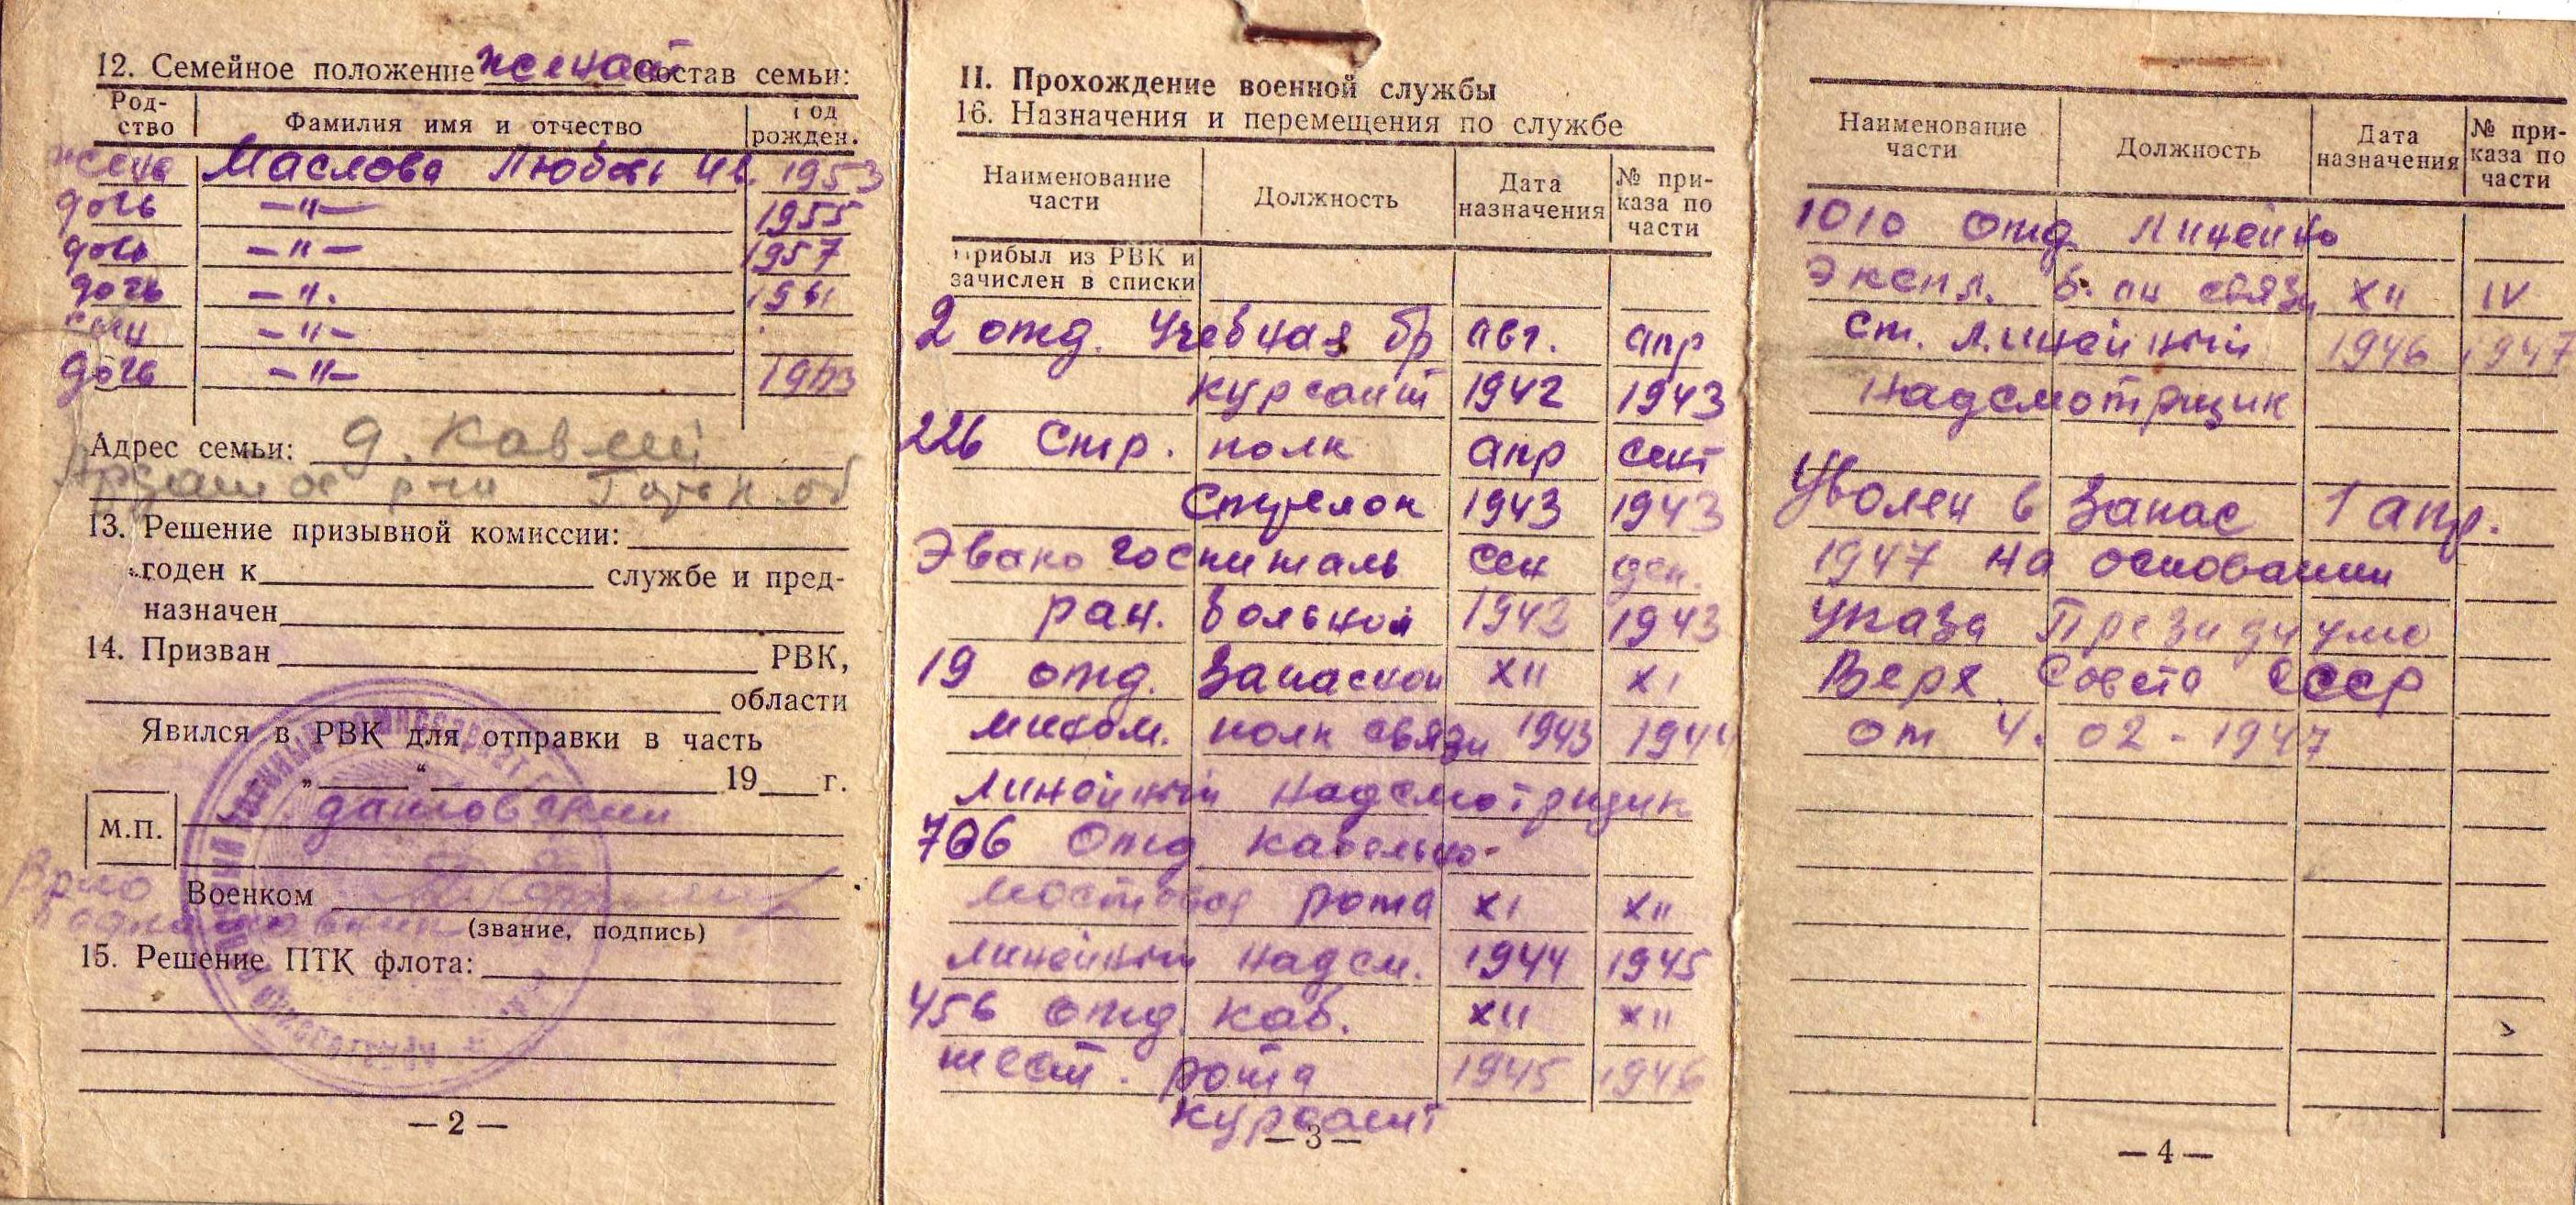 12. Семейное положение женат Состав семьи:
Род-ство Фамилия имя и отчество Год рожден.
жена Маслова Любовь Ив. 1953
дочь —"— 1955
дочь —"— 1957
дочь —". 1961
сын —"—
дочь —"—
Адрес семьи: д.
Арзамас р-на Горьк об
13. Решение призывной комиссии:
годен к службе и пред-
назначен
14. Призван РВК,
области
Явился в РВК для отправки в часть
„ “ 19 г.
М.П.
Врио Военком
(звание, подпись)
15. Решение ПТК флота:
— 2 —
II. Прохождение военной службы
16. Назначения и перемещения по службе
Наименование части Должность Дата назначения № при-каза по части
Прибыл из РВК и
зачислен в списки
2 отд. Учебная бр авг. апр
курсант 1942 1943
226 Стр. полк апр сент
Стрелок 1943 1943
Эвако госпиталь сен дек.
ран. больной 1943 1943
19 отд. Запаской XII XI
полк связи 1943 1944
линейный надсмотрщик
766 отд кабельно-
шестовая рота XI XII
линейный надсм. 1944 1945
456 отд. каб. XII XII
шест. рота 1945 1946
курсант
— 3 —
Наименование части Должность Дата назначения № при-каза по части
1010 отд. Линейно
Экспл. б. он связи XII IV
ст. линейный 1946 1947
надсмотрщик
Уволен в Запас 1 апр.
1947 на основании
указа Президиума
Верх. Совета СССР
от 4. 02 - 1947
— 4 —